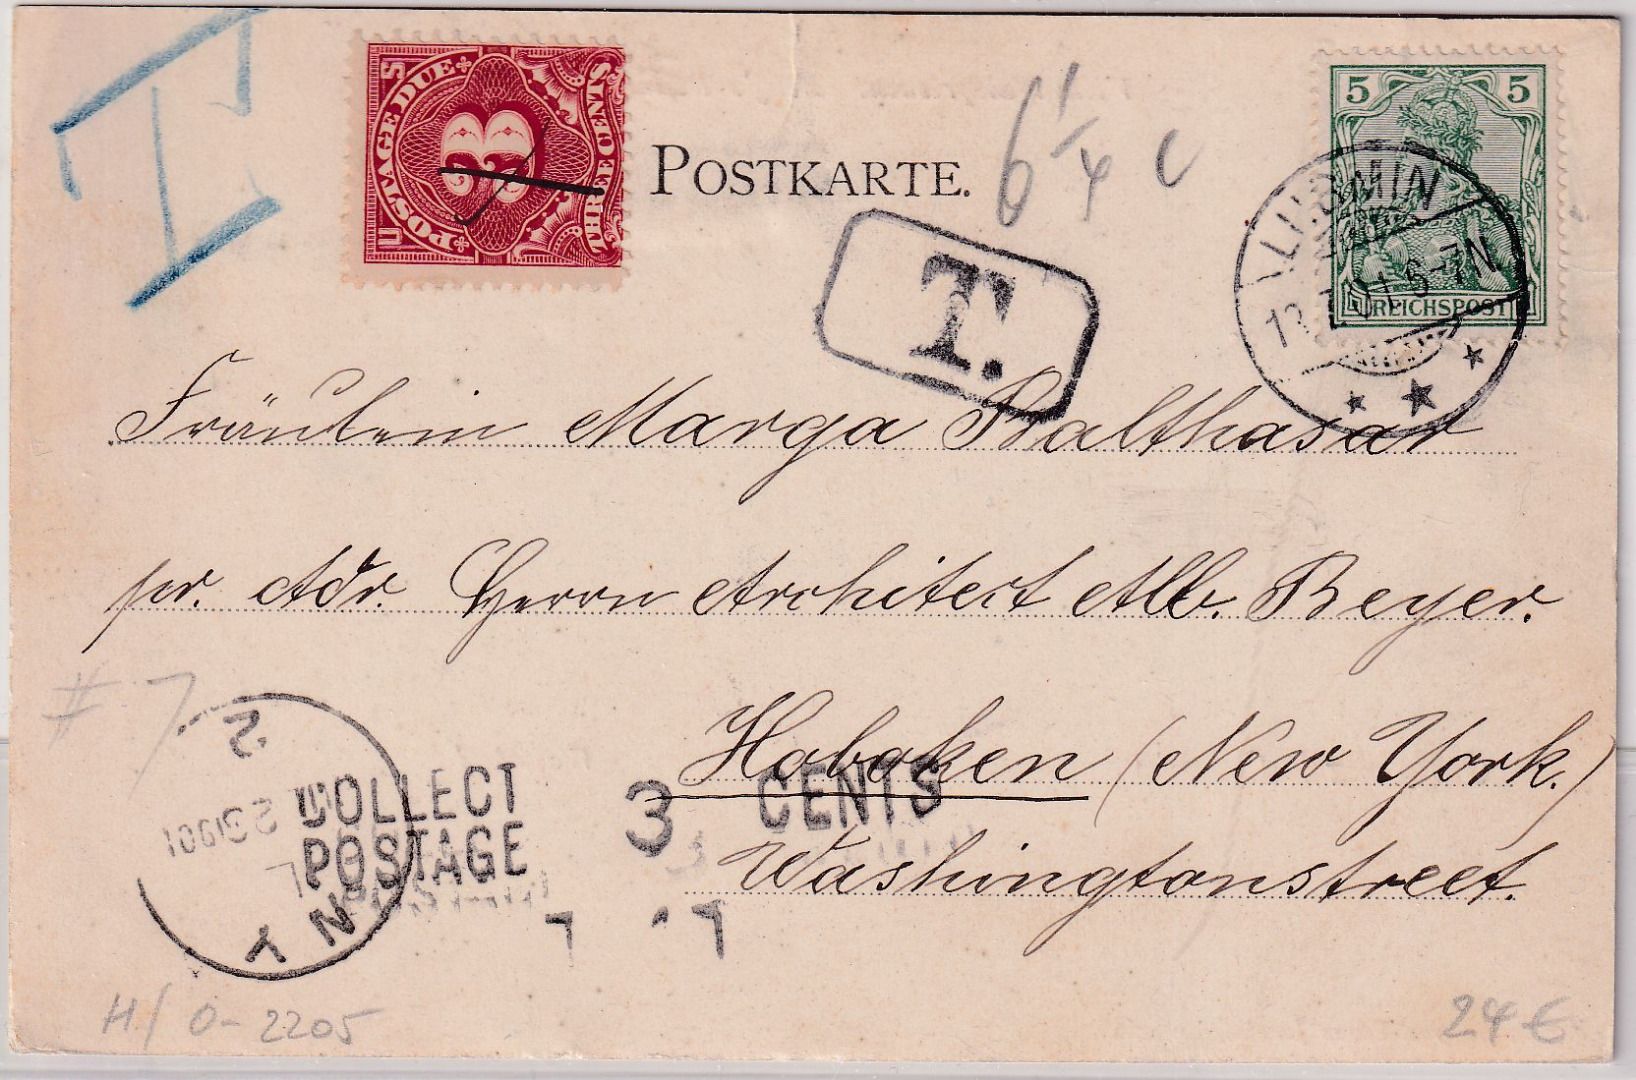 U S
POSTAGE DUE
3
THREE CENTS
POSTKARTE.
6 1/4 c
5 5
REICHSPOST
T.
6-7N
Fräulein Marga Balthasar
pr. Adr. Herrn Architect Alb. Beyer.
# 7
Hoboken (New York.)
Washingtonstreet.
2
COLLECT
POSTAGE
3 CENTS
N Y
H/ 0-2205
24 €